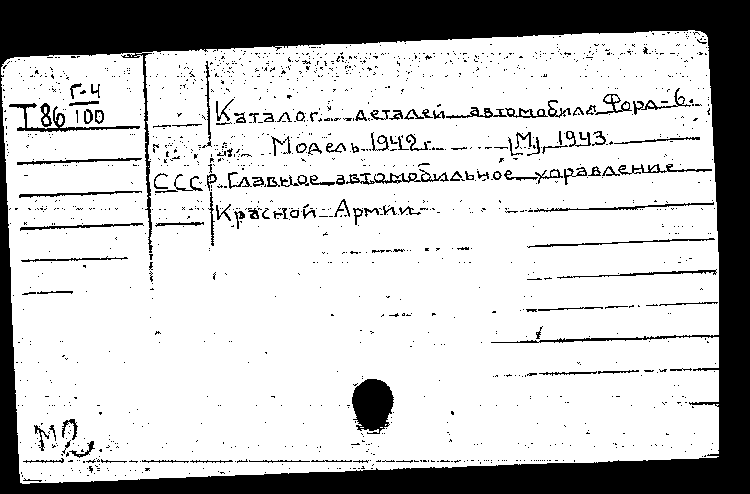 Г-4
Т 86 100
Каталог деталей автомобиля Форд-6.
Модель 1942 г. М, 1943.
СССР. Главное автомобильное управление
Красной Армии.